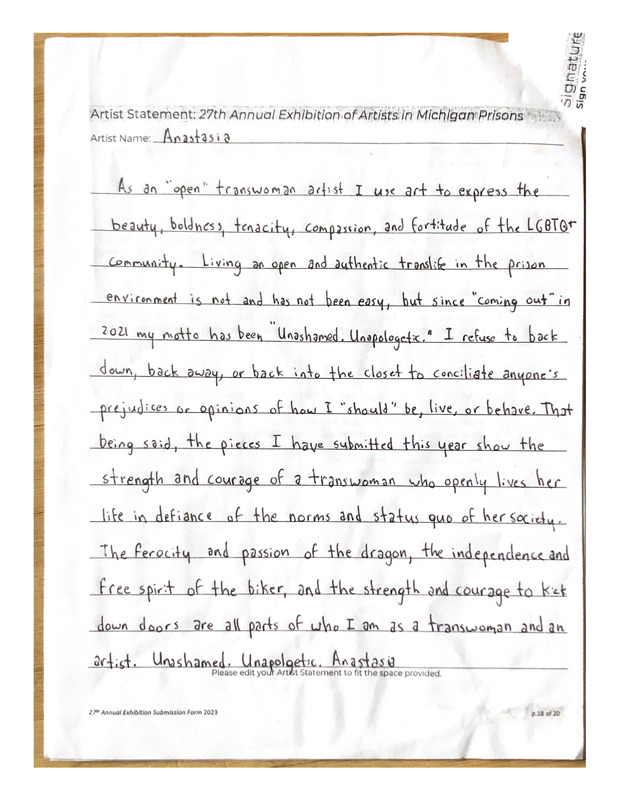 Signature
sign your
Artist Statement: 27th Annual Exhibition of Artists in Michigan Prisons
Artist Name: Anastasia
As an "open" transwoman artist I use art to express the
beauty, boldness, tenacity, compassion, and fortitude of the LGBTQ+
community. Living an open and authentic translife in the prison
environment is not and has not been easy, but since "coming out" in
2021 my motto has been "Unashamed. Unapologetic." I refuse to back
down, back away, or back into the closet to conciliate anyone's
prejudices or opinions of how I "should" be, live, or behave. That
being said, the pieces I have submitted this year show the
strength and courage of a transwoman who openly lives her
life in defiance of the norms and status quo of her society.
The ferocity and passion of the dragon, the independence and
free spirit of the biker, and the strength and courage to kick
down doors are all parts of who I am as a transwoman and an
artist. Unashamed. Unapolgetic. Anastasia
Please edit your Artist Statement to fit the space provided.
27th Annual Exhibition Submission Form 2023
p.18 of 20